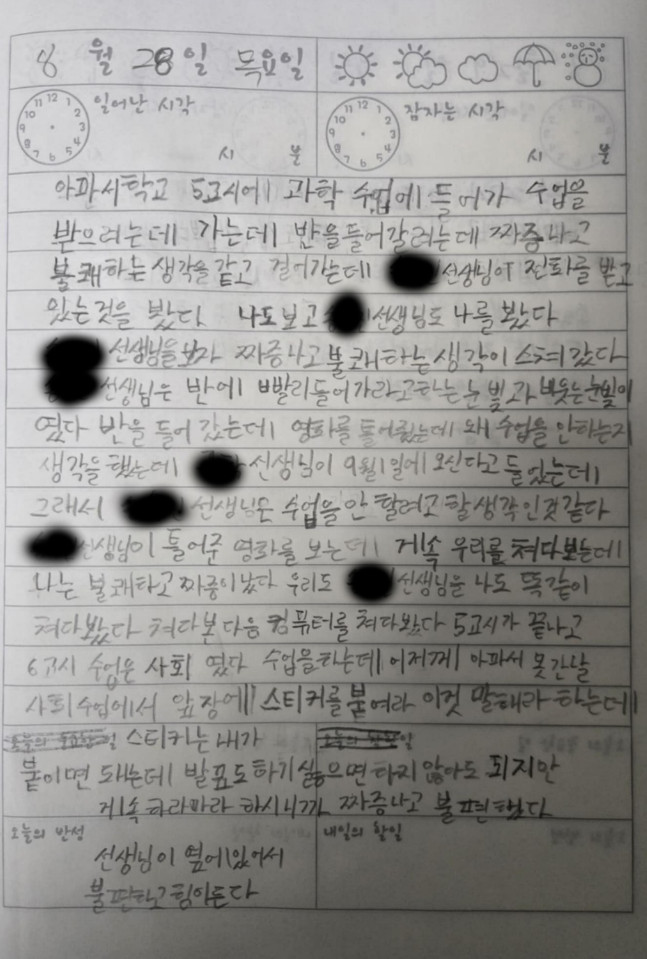 8 월 28일 목요일
일어난 시각
시 분
잠자는 시각
시 분
아파서학교 5교시에 과학 수업에 들어가 수업을
받으러는데 가는데 반을들어갈려는데 짜증나고
불쾌하는 생각을 같고 걸어가는데 선생님이 전화를 받고
있는것을 봤다 나도보고 선생님도 나를 봤다
선생님을보자 짜증나고불쾌하는생각이 스쳐갔다
선생님은 반에 빨리들어가라고하는 눈빛과 비웃는눈빛이
였다 반을 들어 갔는데 영화를 틀어줬는데 왜 수업을 안하는지
생각을 했는데 선생님이 9월1일에 오신다고 들었는데
그래서 선생님은 수업을 안 할려고 할생각인것같다
선생님이 틀어준 영화를 보는데 계속 우리를 쳐다보는데
나는 불쾌하고 짜증이났다 우리도 선생님을 나도 똑같이
쳐다봤다 쳐다본다음 컴퓨터를 쳐다봤다 5교시가 끝나고
6교시 수업은 사회 였다 수업을하는데 어저께 아파서 못간날
사회수업에서 앞장에 스티커를 붙여라 이것 말해라 하는데
일 스티커는 내가
일
붙이면 돼는데 발표도하기싫으면하지않아도 되지만
계속 하라마라 하시니까 짜증나고 불편했다
오늘의 반성
내일의 할일
선생님이 옆에있어서
불편하고힘이든다